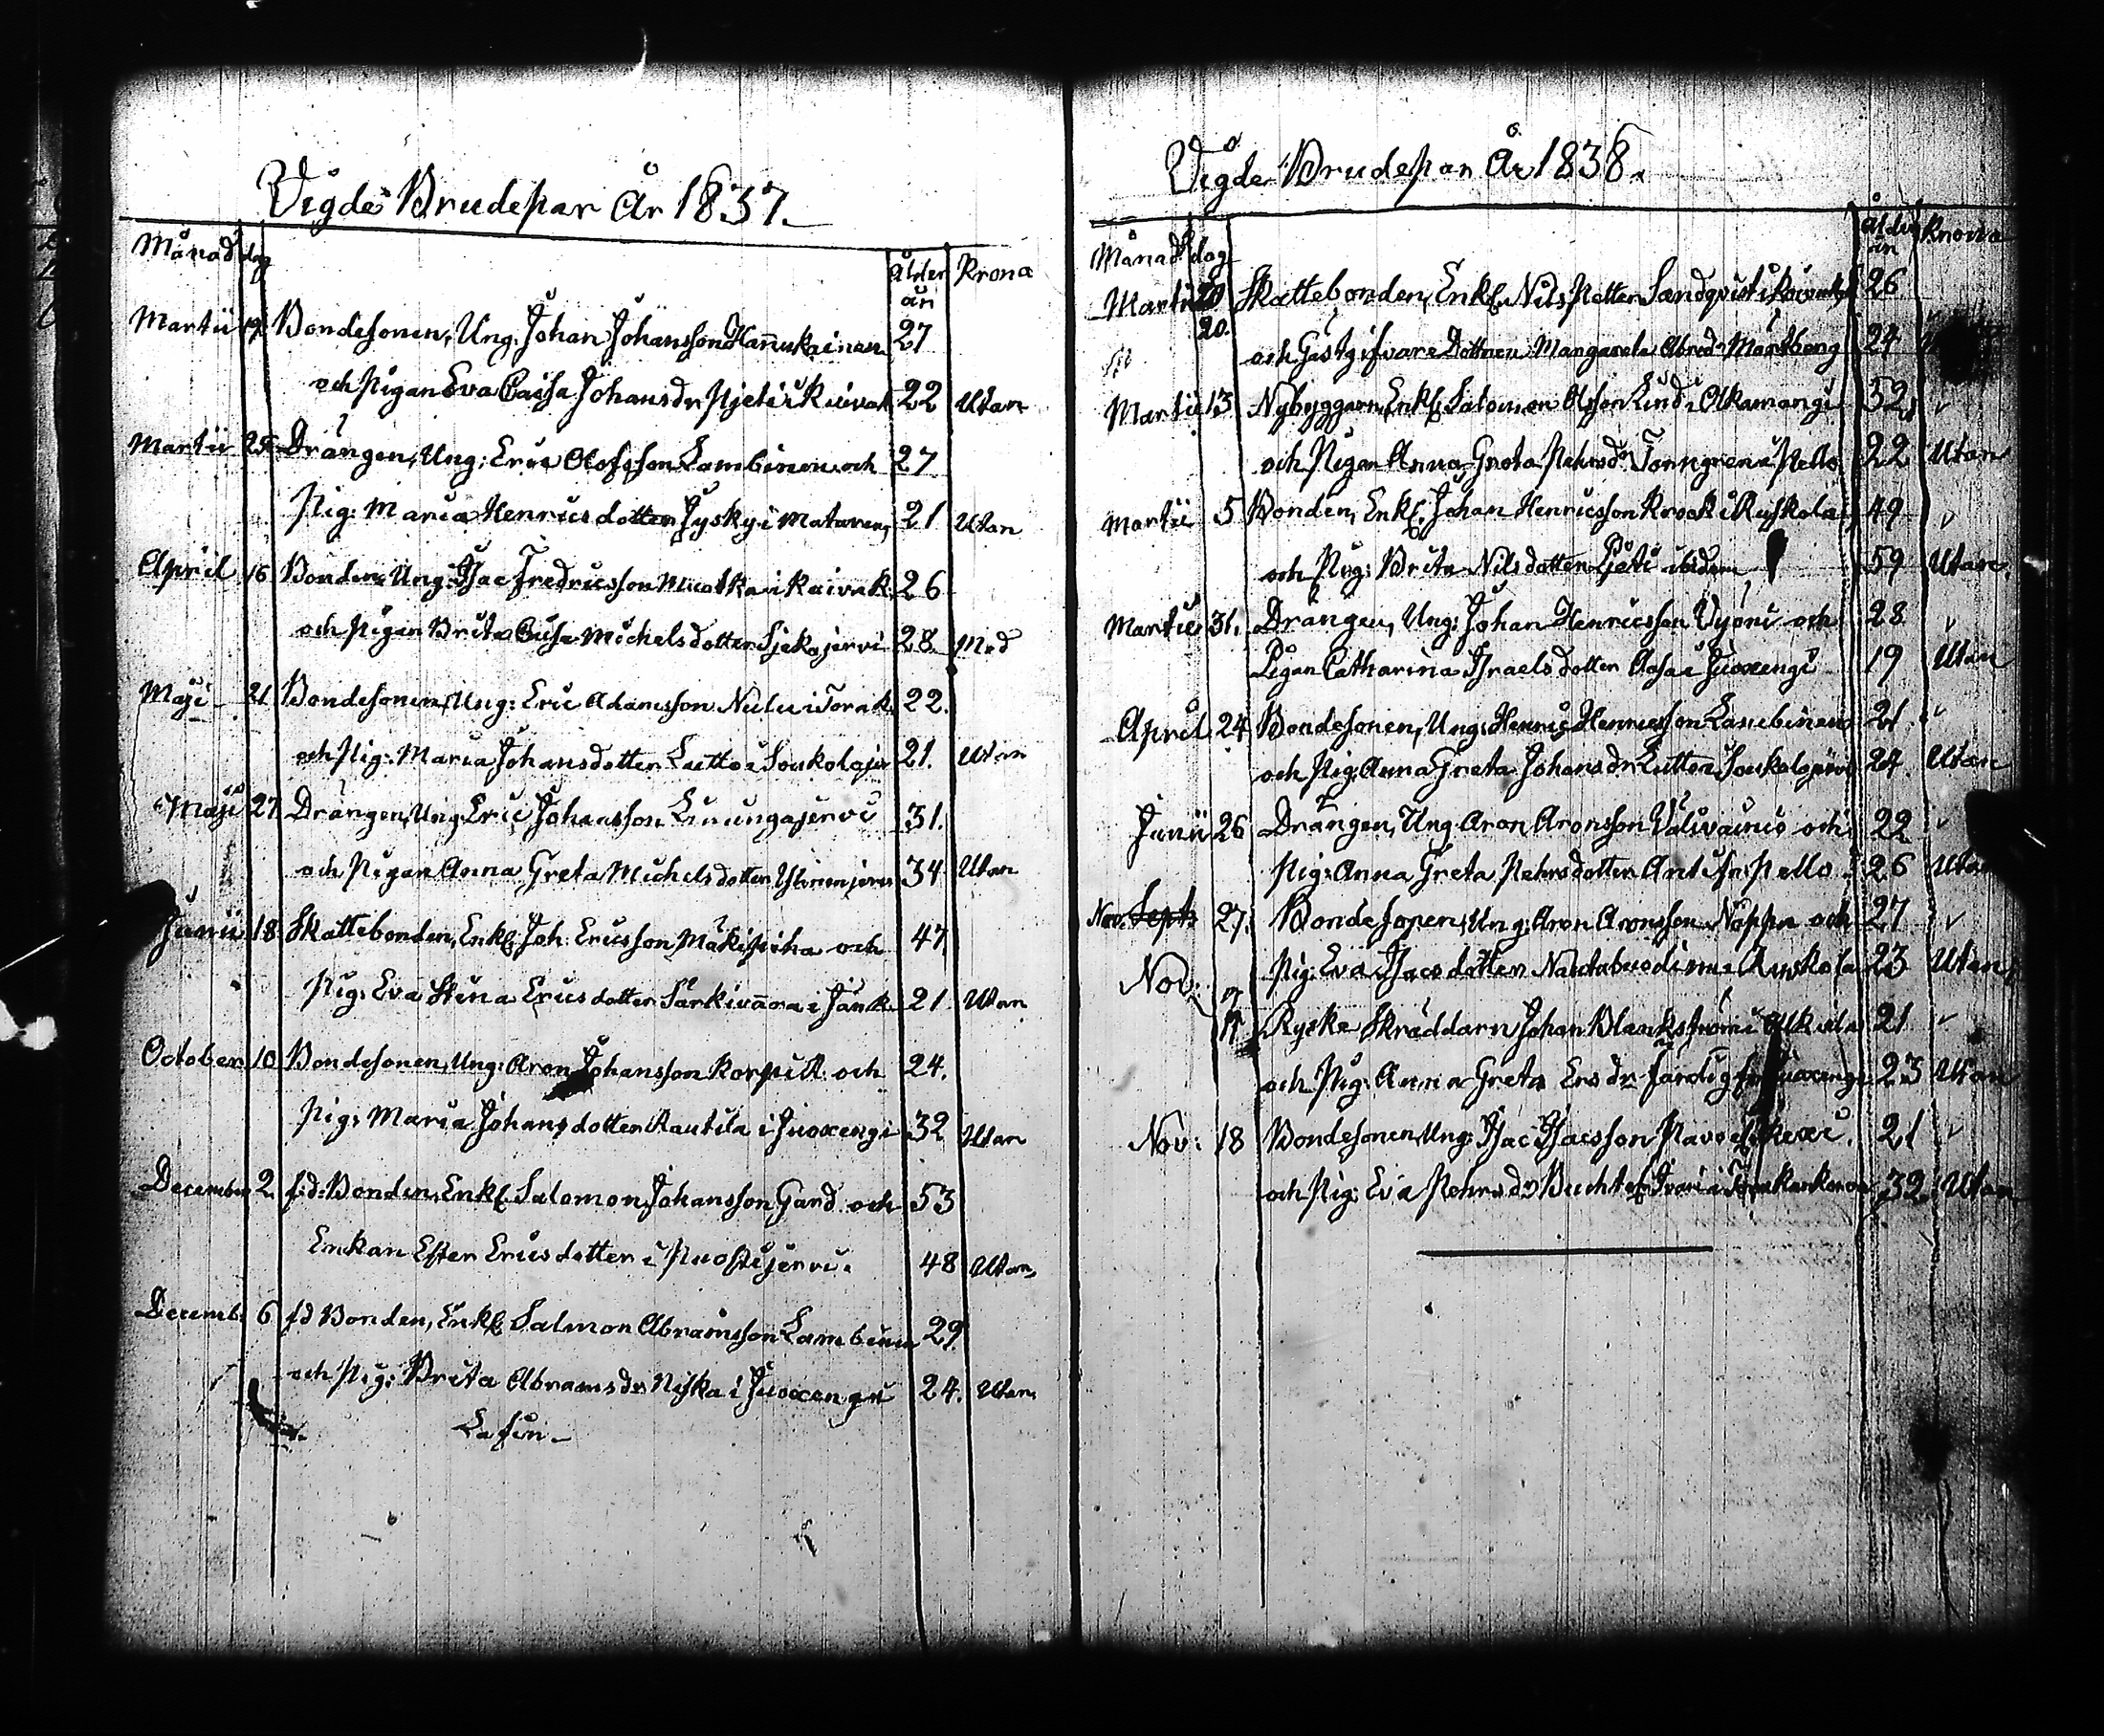 Vigde Brudepar År 1837.
Månad dag Ålder år Krona
Martii 19 Bondesonen, Ung: Johan Johansson Hannukainen 27
och Pigan Eva Caisa Johansdr Pjeti i Kuivak. 22 Utan
Martii 25 Drängen, Ung: Eric Olofsson Lambinen och 27
Pig: Maria Henricsdotter Jysky i Matareng 21 Utan
April 16 Bonden, Ung: Isac Fredricsson Muotka i Kaivak. 26
och Pigan Brita Caisa Michelsdotter Sjekajervi 28. Med
Maji 21 Bondesonen, Ung: Eric Adamsson Nulu i Torak. 22.
och Pig: Maria Johansdotter Luitto i Soukolojer 21. Utan
Maji 27. Drängen, Ung. Eric Johansson Liuungajervi 31.
och Pigan Anna Greta Michelsdotter 34 Utan
Junii 18 Skattebonden, Enkl. Joh. Ericsson Mäkipiha och 47
Pig: Eva Stina Ericsdotter Särkivaara i Jänk. 21 Utan
October 10 Bondesonen, Ung: Aron Johansson Korpi R. och 24.
Pig: Maria Johansdotter Rautila i Juoxengi 32 Utan
December 2. f:d: Bonden, Enkl. Salomon Johansson Gard och 53
Enkan Ester Ericsdotter i Puostijervi. 48 Utan
Decemb: 6 fd Bonden, Enkl Salmon Abramsson Lambinen 29.
och Pig: Brita Abramsdr Niska i Juoxengi 24. Utan
Vigde Brudepar År 1838.
Månad dag Ålder år Krona
Martii 20 Skattebonden, Enkl. Nils Petter Sandqvist i 26
20. och Gästgifvare Dottren Margareta Abrsd. Mörtberg 24
Martii 13 Nybyggaren, Enkl. Salomon Olsson Lind i Olkamangi 52
och Pigan Anna Greta Pehrsdr Törngren i Pello 22 Utan
Martii 5 Bonden, Enkl. Johan Henricsson Krook i Ruskola 49
och Pig: Brita Nilsdotter Pjeti ibidem 59 Utan.
Martii 31. Drängen, Ung: Johan Henricsson Vyöni och 28
Pigan Catharina Israelsdotter Aosa i Juoxengi 19 Utan
April 24 Bondesonen, Ung: Henric Henricsson Lambinen 21
och Pig: Anna Greta Johansdr Luitto i Soukolojervi 24 Utan
Junii 26 Drängen, Ung. Aron Aronsson Valivainio och 22
Pig: Anna Greta Pehrsdotter Anti fr. Pello 26 Utan
Nov. Sept: 27. Bondesonen, Ung: Aron Aronsson Näppa och 27
Pig: Eva Isacsdotter i Ruskola 23 Utan
Nov: Ryske Skräddarn Johan Blankström i Alkula 21
och Pig: Anna Greta Ersdr Färdig fr Juoxengi 23 Utan
Nov: 18 Bondesonen, Ung: Isac Isacsson Pavo 21
och Pig: Eva Pehrsdr Bucht 32. Utan